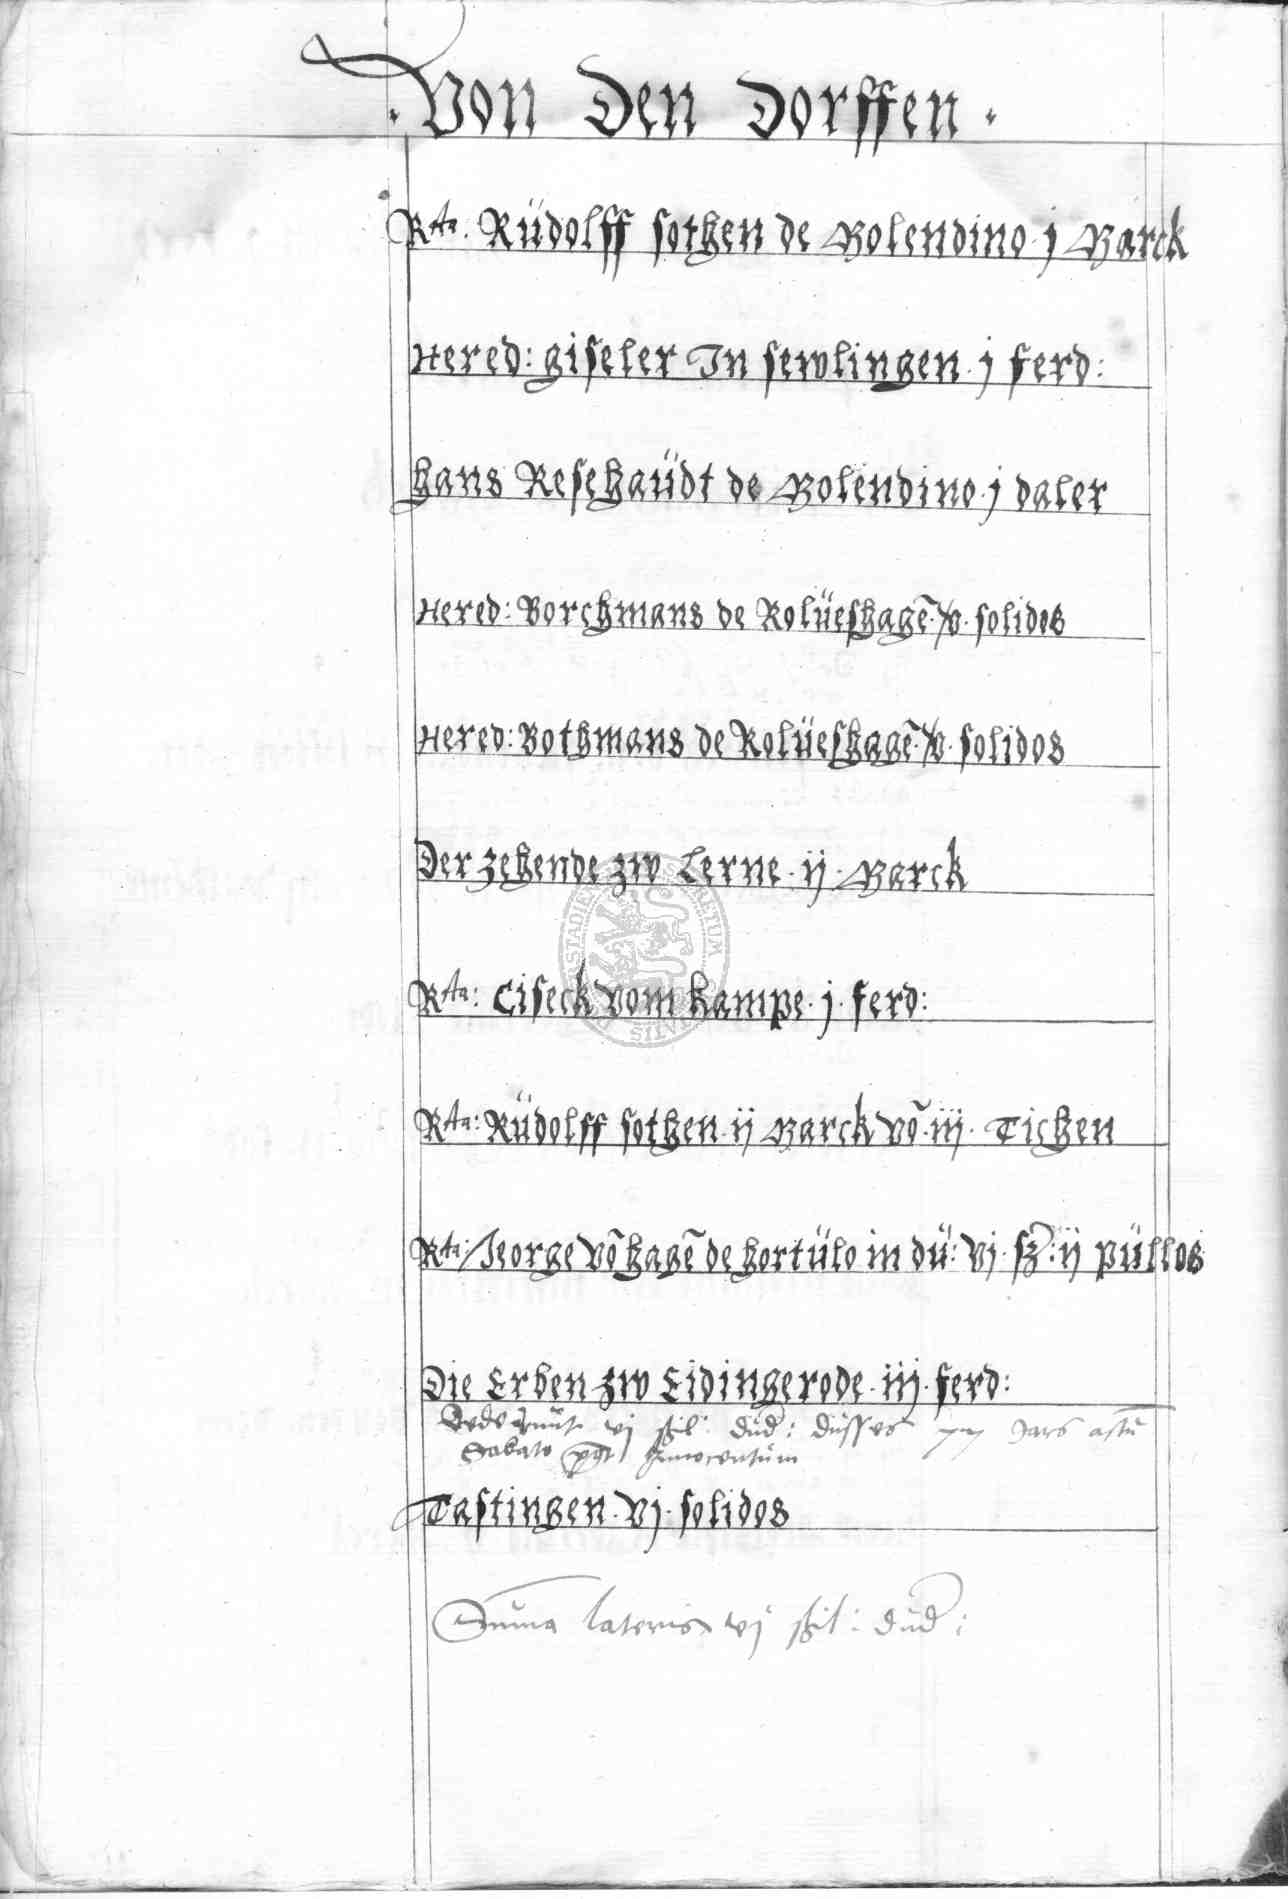 . Von Den Dorffen .
Rta. Rüdolff sothen de Bolendino . j Marck
Hered: giseler In sewlingen . j ferd:
hans Resehaüdt de Bolendino . j daler
Hered: Borchmans de Rolüeshagē . v . solidos
Hered: Bothmans de Rolüeshagē . v . solidos
Der zehende zw Lerne . ij . Marck
Rta: Ciseck vom hampe . j . ferd:
Rta: Rüdolff sothen . ij Marck vō . iij . Tichen
Rta: Jeorge vō hagē de hortülo in dü: vj . sz: ij püllos
Die Erben zw Eidingerode . iij . ferd:
vj ßil: düd: düsses Jars
Sabato Innocentüm
Tastingen . vj . solidos
Sūma lateris vj ßil: düd: